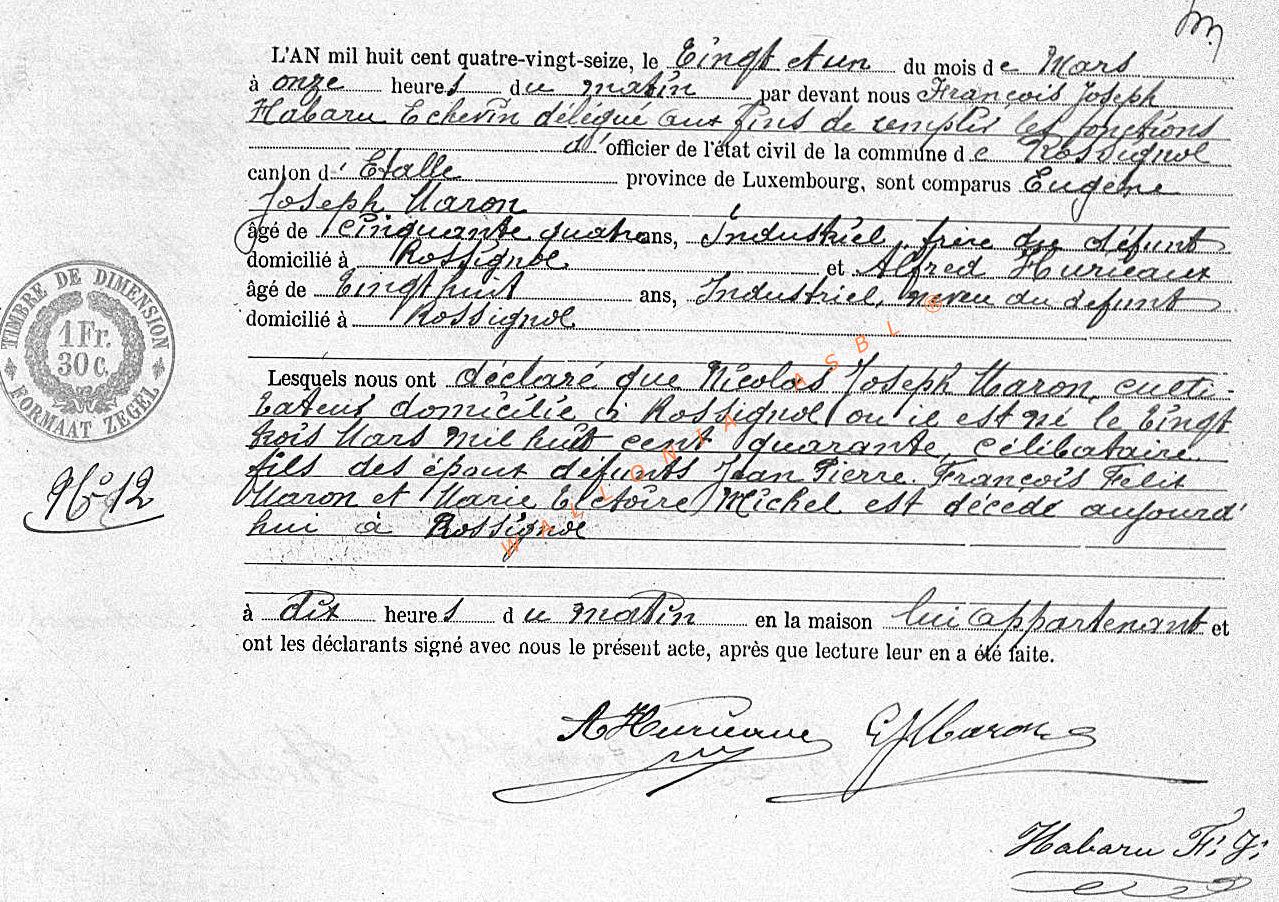 L'AN mil huit cent quatre-vingt-seize, le Vingt et un du mois de Mars
à onze heures du matin par devant nous François Joseph
Habaru Echevin délégué aux fins de remplir les fonctions
d'officier de l'état civil de la commune de Rossignol
canton d' Etalle province de Luxembourg, sont comparus Eugène
Joseph Maron
âgé de cinquante quatre ans, Industriel, frère du défunt
domicilié à Rossignol et Alfred Hurieaux
âgé de Vingt huit ans, Industriel, neveu du defunt
domicilié à Rossignol
TIMBRE DE DIMENSION
1 Fr.
30 c.
FORMAAT ZEGEL
Lesquels nous ont déclaré que Nicolas Joseph Maron, culti
vateur domicilié à Rossignol où il est né le Vingt
trois Mars mil huit cent quarante, célibataire
fils des époux défunts Jean Pierre François Felix
Maron et Marie Victoire Michel est décédé aujourd'
hui à Rossignol
No 12
WALLONIA ASBL ®
à dix heures du matin en la maison lui appartenant et
ont les déclarants signé avec nous le présent acte, après que lecture leur en a été faite.
A Hurieaux EJMaron
Habaru F. J.